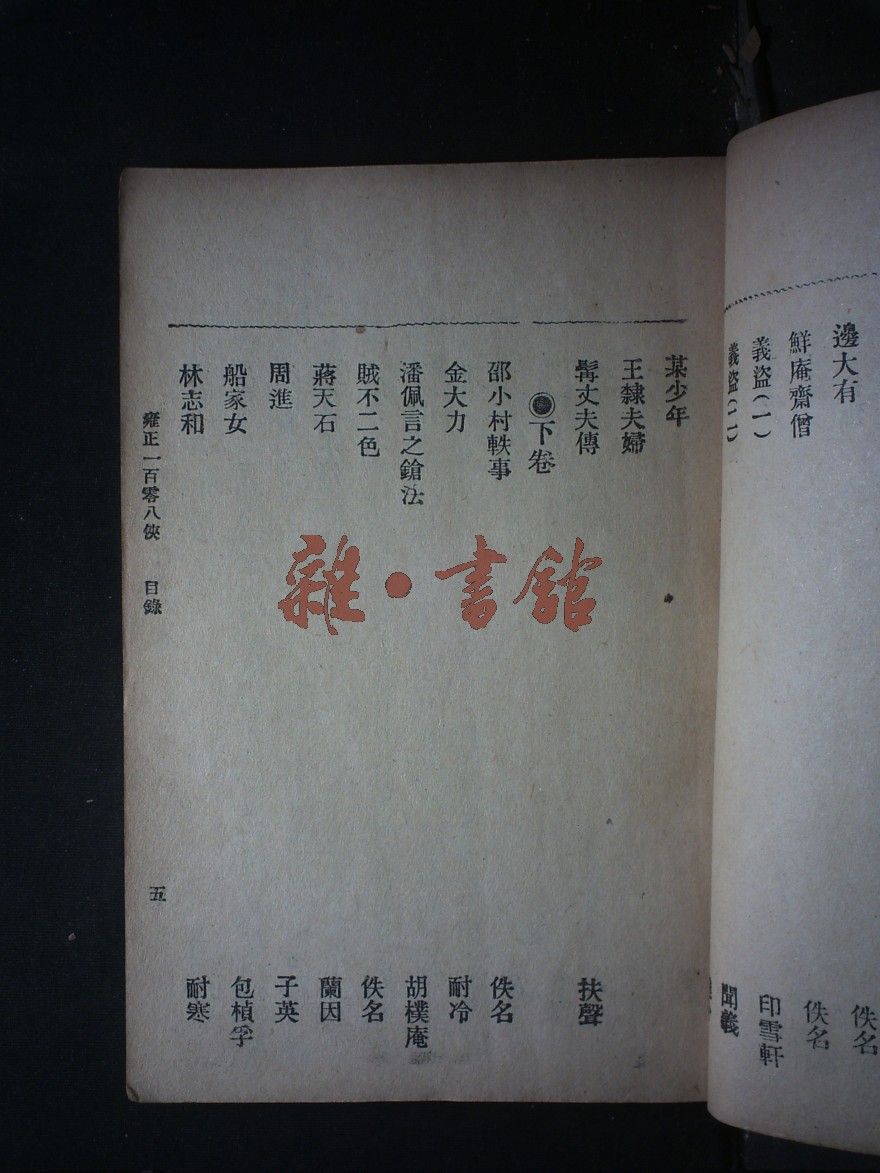 邊大有 佚名
鮮庵齋僧 佚名
義盜(一) 印雪軒
義盜(二) 聞義
某少年
王隸夫婦
髯丈夫傳 扶聲
下卷
邵小村軼事 佚名
金大力 耐冷
潘佩言之鎗法 胡樸庵
賊不二色 佚名
蔣天石 蘭因
周進 子英
船家女 包楨孚
林志和 耐寒
雍正一百零八俠 目錄 五
雜·書館